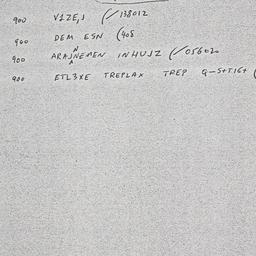 900 V1ZE,J (✓138012
900 DEM ESN (408
900 ARAJNEMEN INHUJZ (✓05602
900 ETL3XE TREPLAX TREP Q-5+TIG+ (